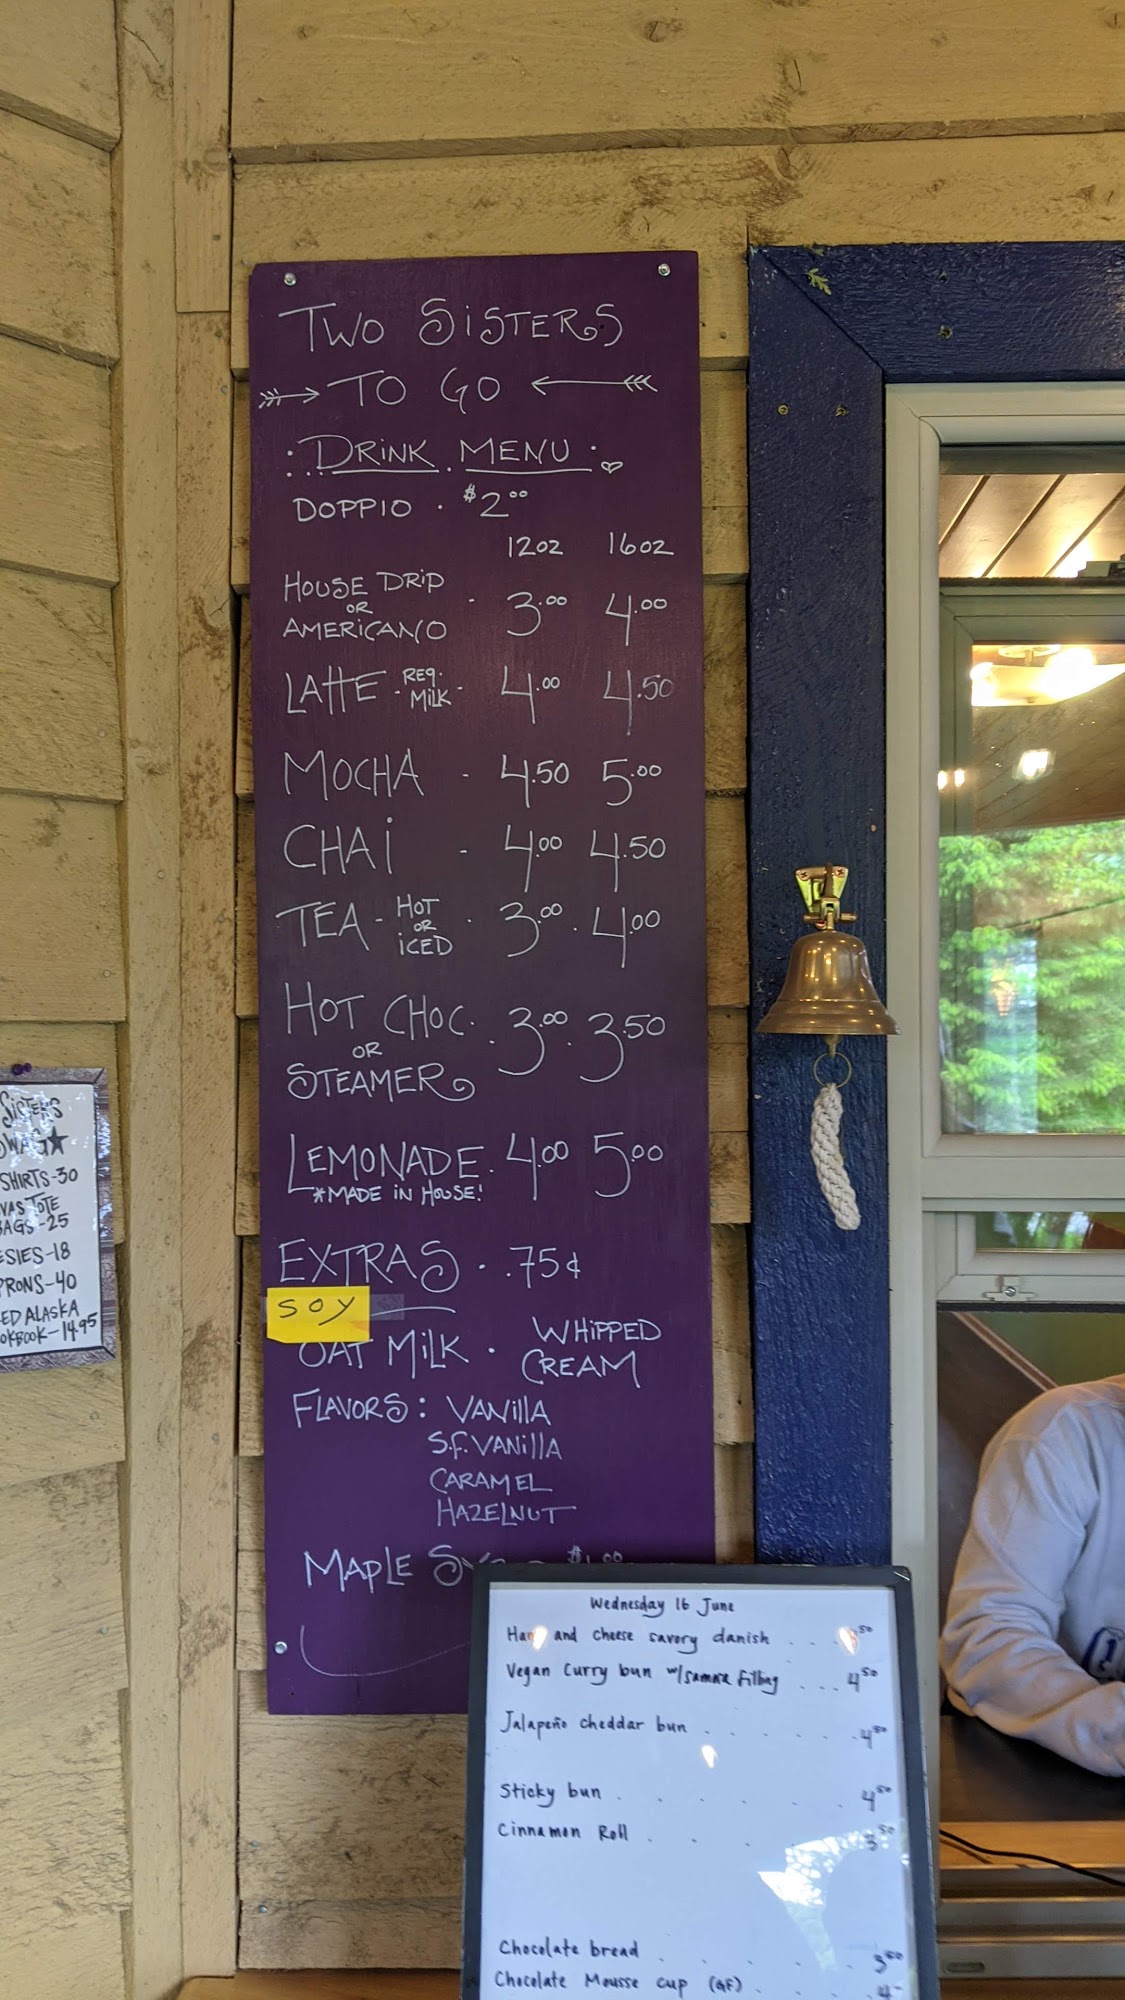 TWO SISTERS
TO GO
DRINK MENU
DOPPIO · $2.00
12oz 16oz
HOUSE DRIP OR AMERICANO - 3.00 4.00
LATTE - REG. MILK - 4.00 4.50
MOCHA - 4.50 5.00
CHAI - 4.00 4.50
TEA - HOT OR ICED · 3.00 · 4.00
HOT CHOC. OR STEAMER · 3.00 · 3.50
LEMONADE · 4.00 5.00
*MADE IN HOUSE!
EXTRAS · .75¢
SOY
OAT MILK · WHIPPED CREAM
FLAVORS: VANILLA
S.F. VANILLA
CARAMEL
HAZELNUT
MAPLE
SISTERS
SHIRTS-30
TOTE
BAGS-25
-18
-40
ALASKA
-14.95
Wednesday 16 June
and cheese savory danish
Vegan Curry bun w/ filling ... 4.50
Jalapeño cheddar bun . . . . . 4.50
Sticky bun . . . . . . 4.50
Cinnamon Roll . . . . 3.50
Chocolate bread . . . . . 3.50
Chocolate Mousse cup (GF) . . . . 4-